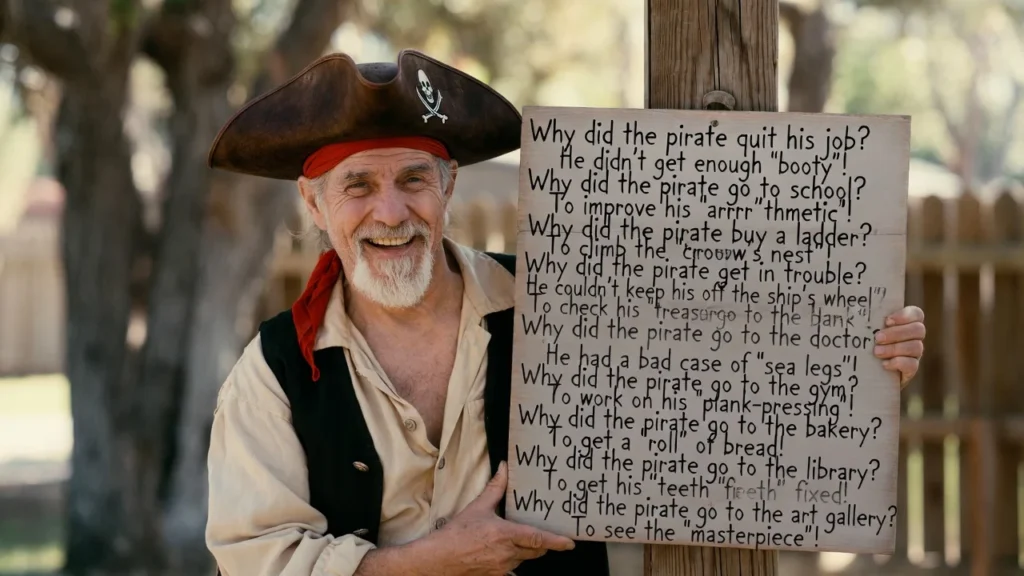 Why did the pirate quit his job?
He didn't get enough "booty"!
Why did the pirate go to school?
To improve his "arrrr"thmetic"!
Why did the pirate buy a ladder?
To climb the "croow's nest"
Why did the pirate get in trouble?
He couldn't keep his off the ship's wheel"!
To check his "treasurgo to the
Why did the pirate go to the doctor
He had a bad case of "sea legs"!
Why did the pirate go to the gym?
To work on his "plank-pressing"!
Why did the pirate go to the bakery?
To get a "roll" of bread!
Why did the pirate go to the library?
To get his "teeth" fixed!
Why did the pirate go to the art gallery?
To see the "masterpiece"!